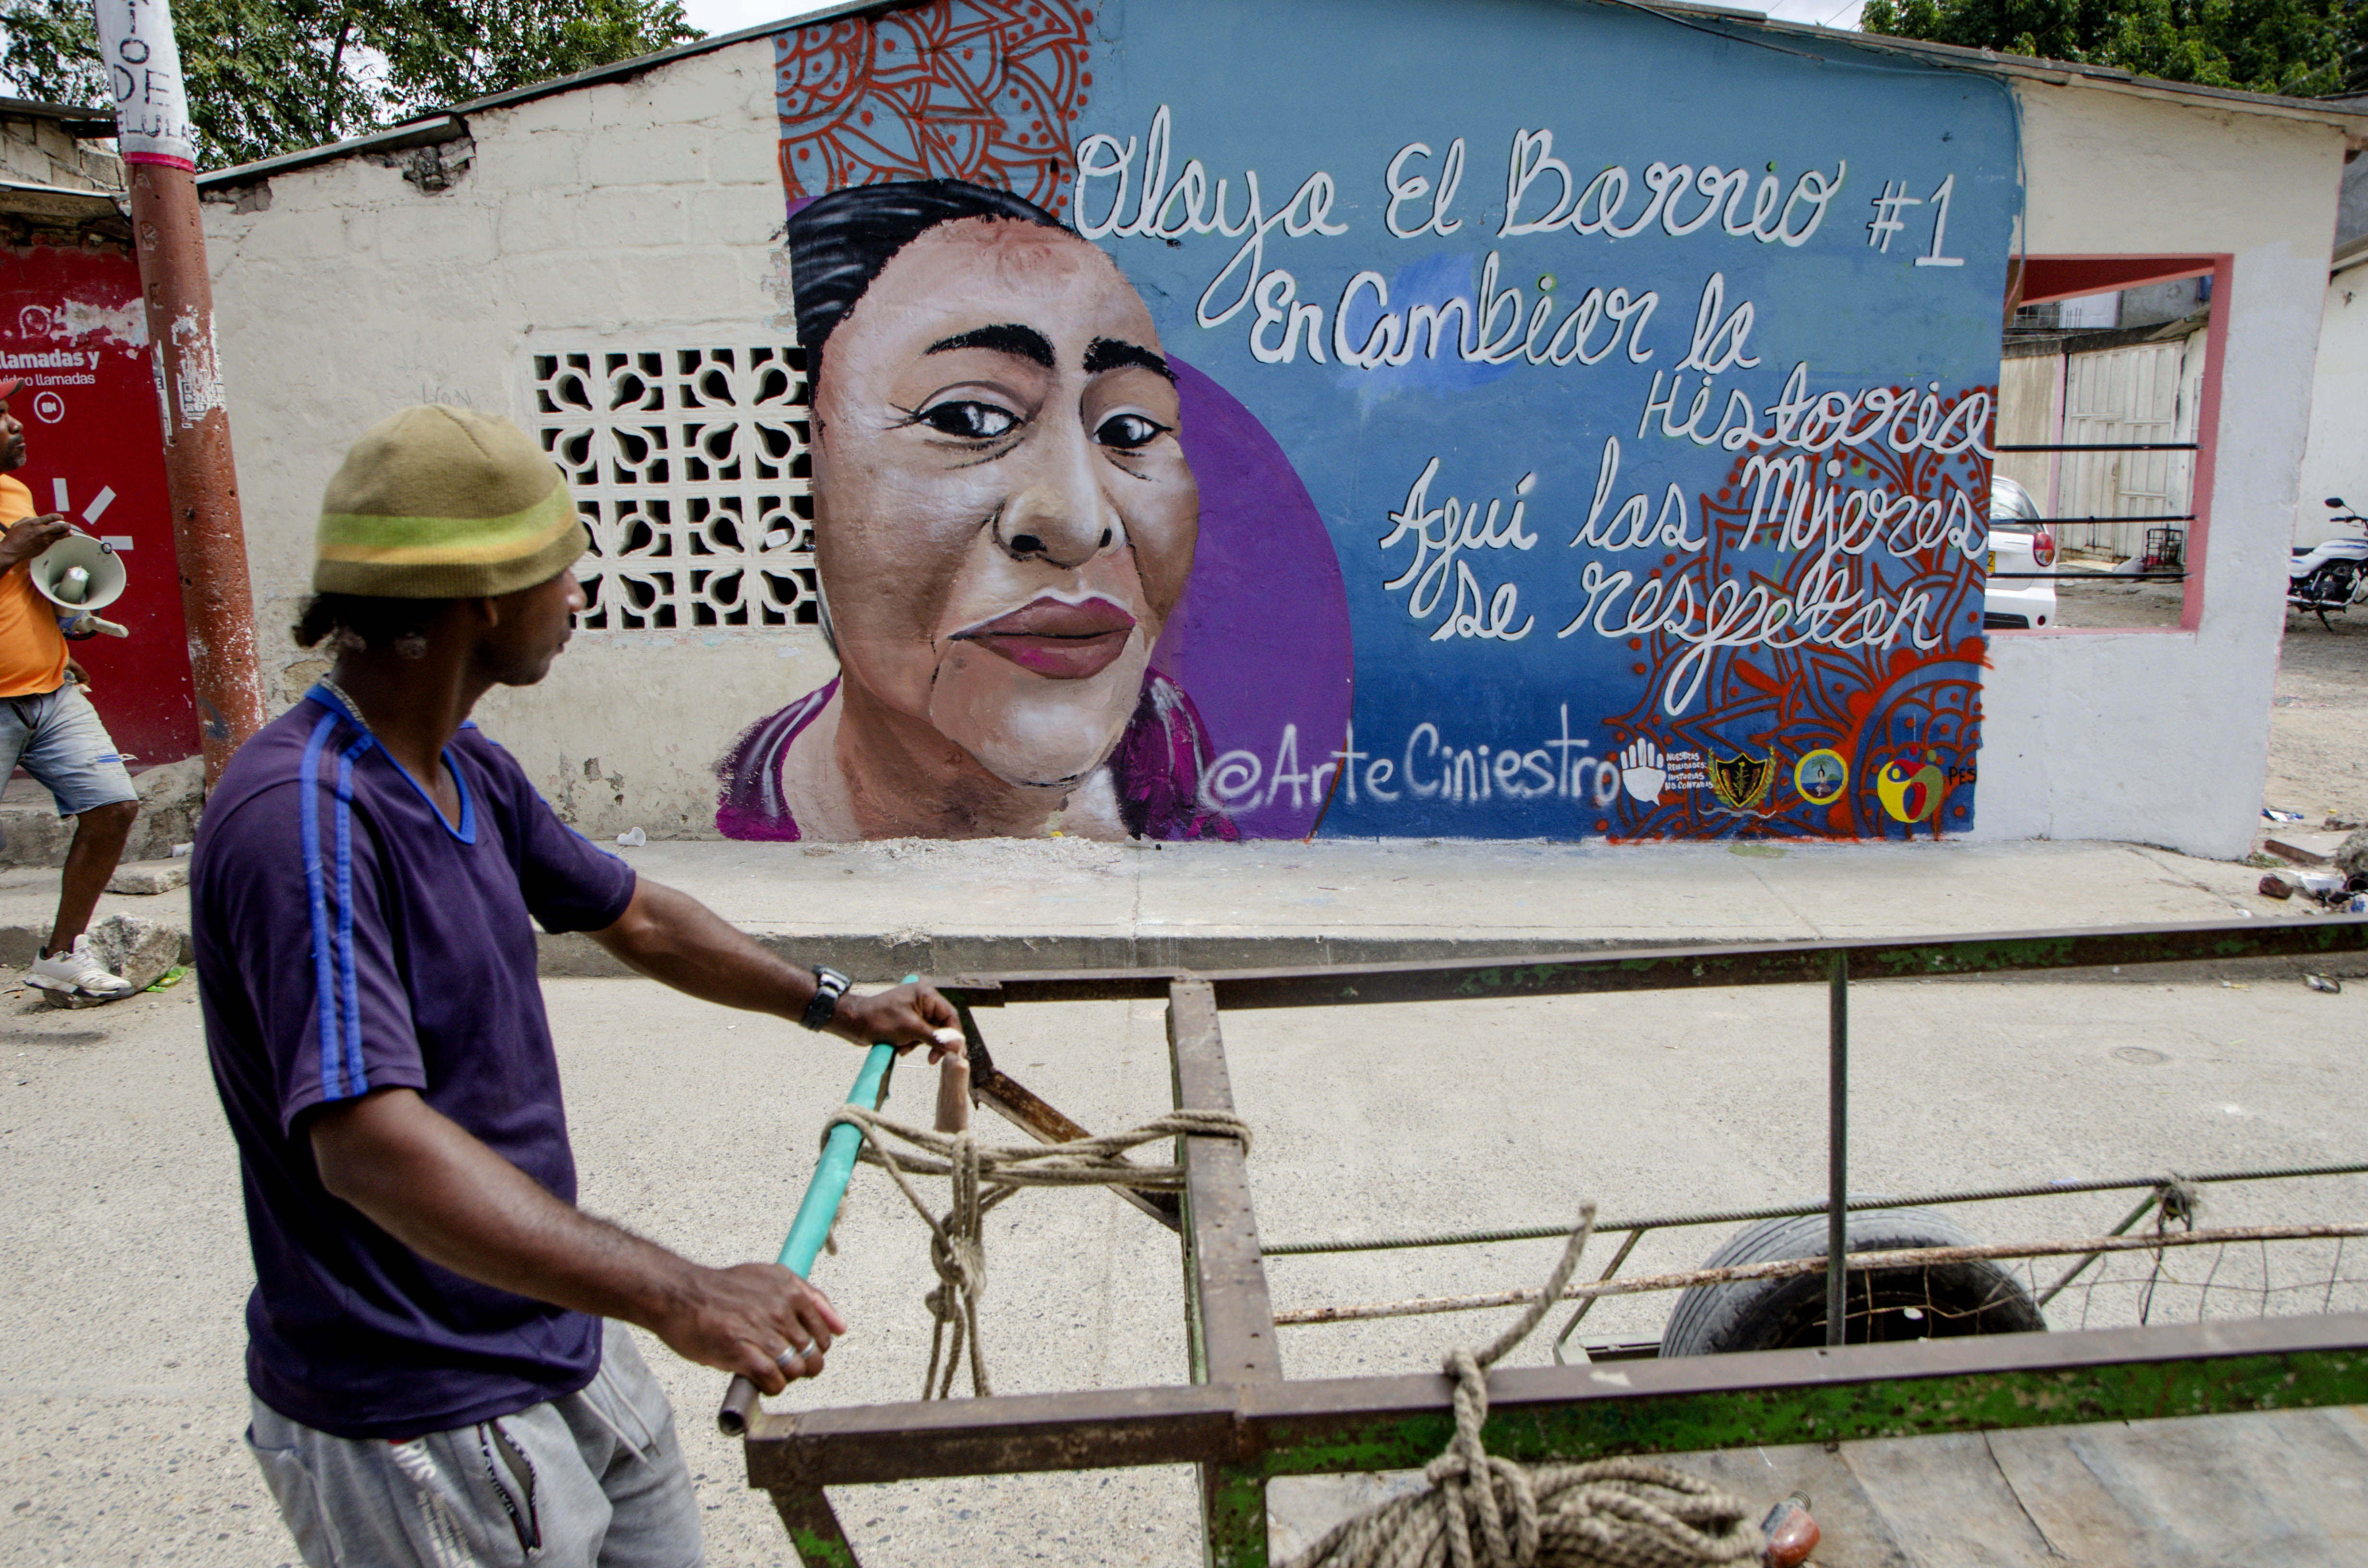 Olaya El Barrio #1
En Cambiar la
Historia
Aquí las Mujeres
se respetan
@ArteCiniestro
NUESTRAS
REALIDADES
HISTORIAS
NO CONTADAS
PES
DE
llamadas y
video llamadas